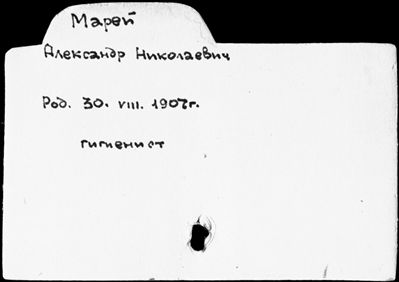 Марей
Александр Николаевич
Род. 30. VIII. 1907г.
гигиенист